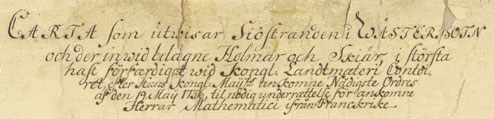 CARTA som utwisar Siöstranden i WÄSTERBOTN
och der inwid belägne Holmar och Skiär, i största
hast förfärdigat wid Kongl. Landtmäteri Contoi,
ret, efter Hans Kongl. Maijts. ankomne Nådigste Ordres
af den 19 Maij 1736, til nödig underrättelse för ankomne
Herrar Mathematici ifrån Franckrike.